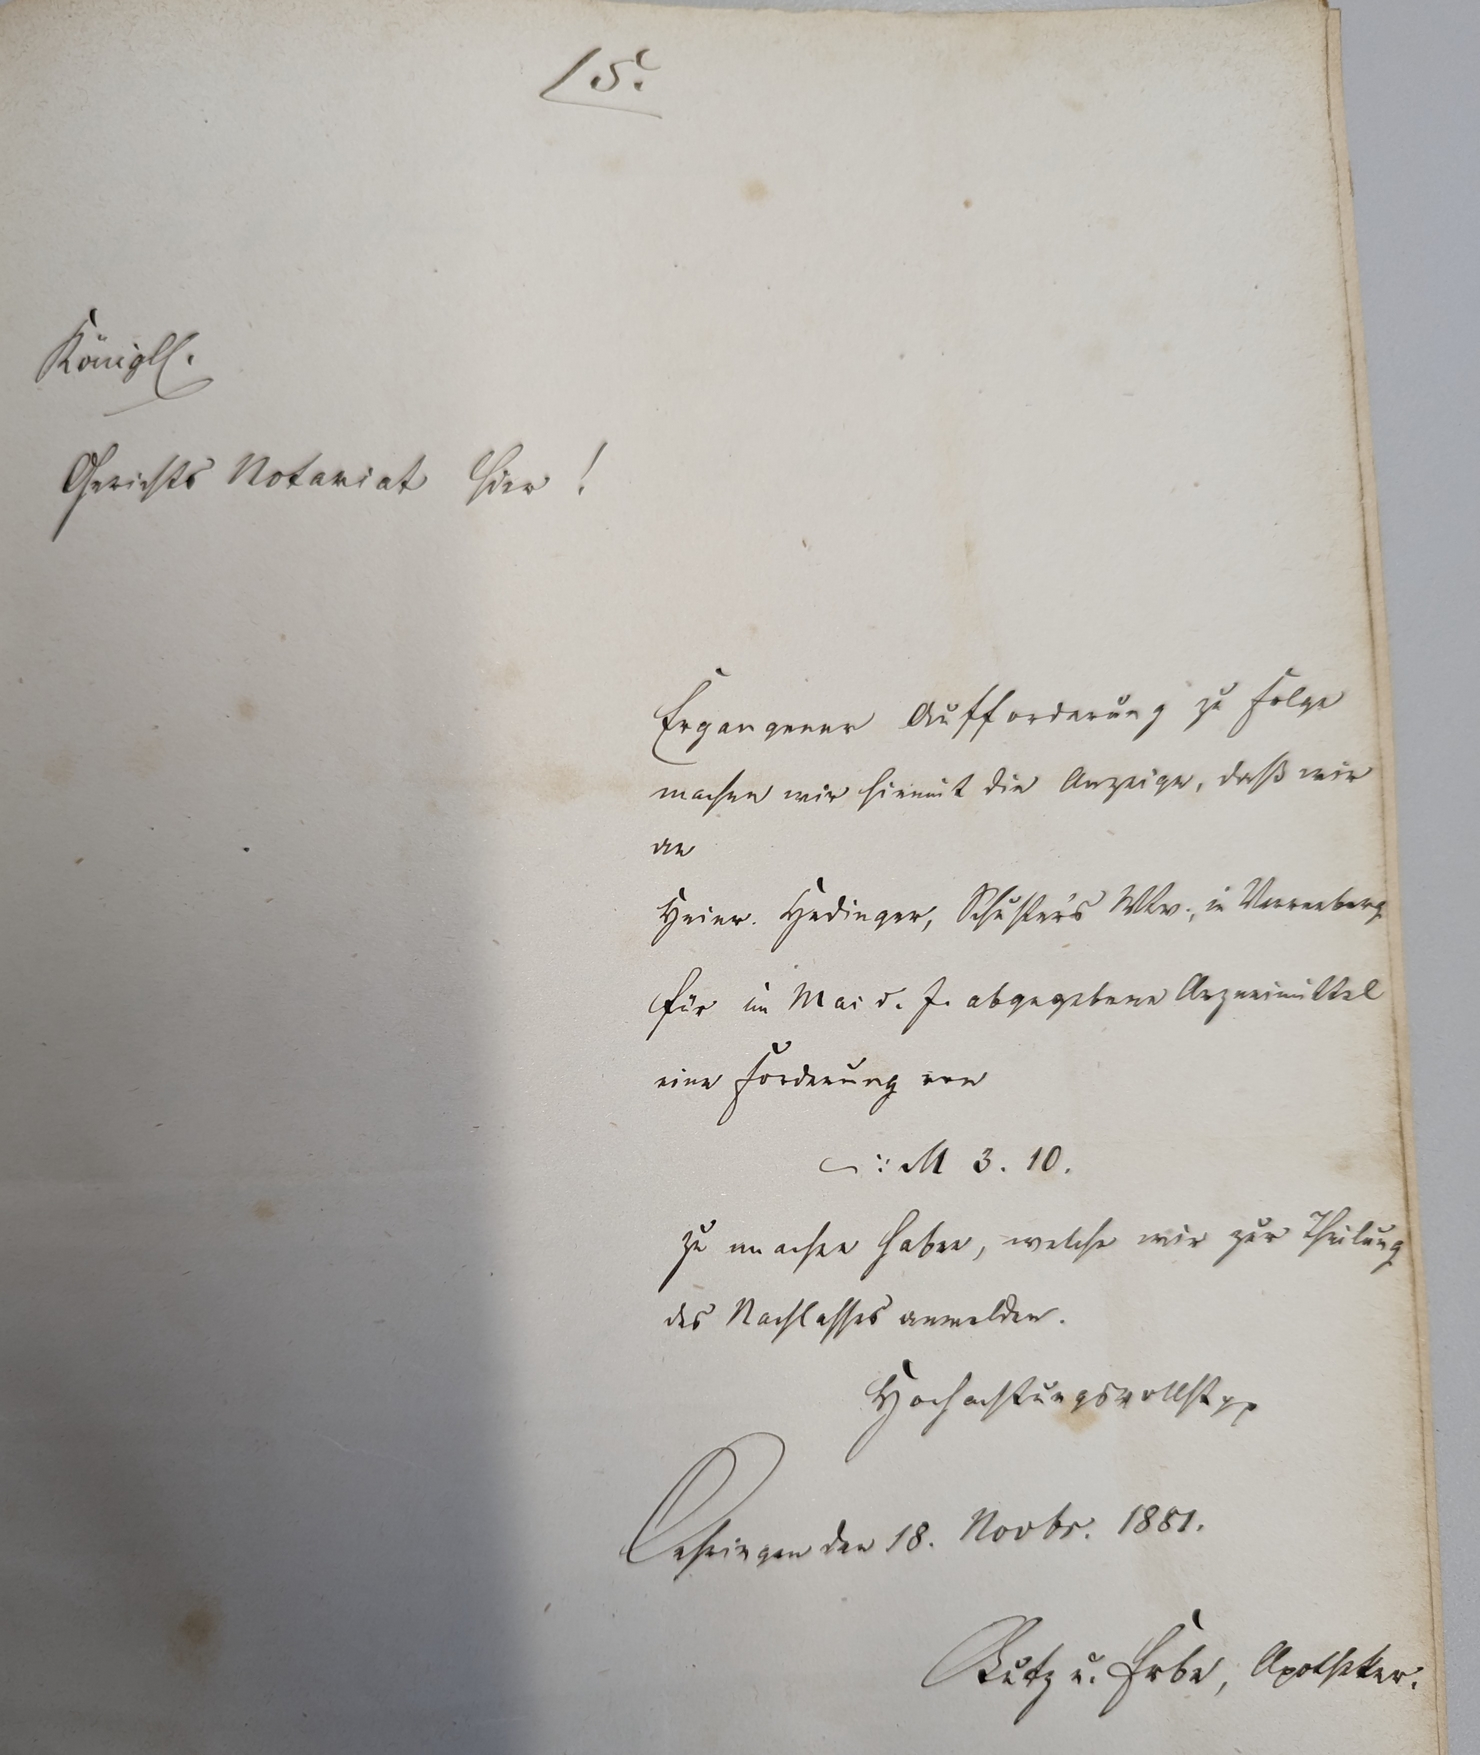 15.
Königll.
Gerichts Notariat hier!
Ergangener Aufforderung zu Folge
machen wir hiemit die Anzeige, daß wir
an
Heinr. Hedinger, Schuster's Wtw., in Verrenberg
für im Mai d. J. abgegebene Arzneimittel
eine Forderung von
M 3. 10.
zu machen haben, welche wir zur Theilung
des Nachlasses anmelden.
Hochachtungsvollst
Oehringen den 18. Novbr. 1881.
u. Erbe, Apotheker.